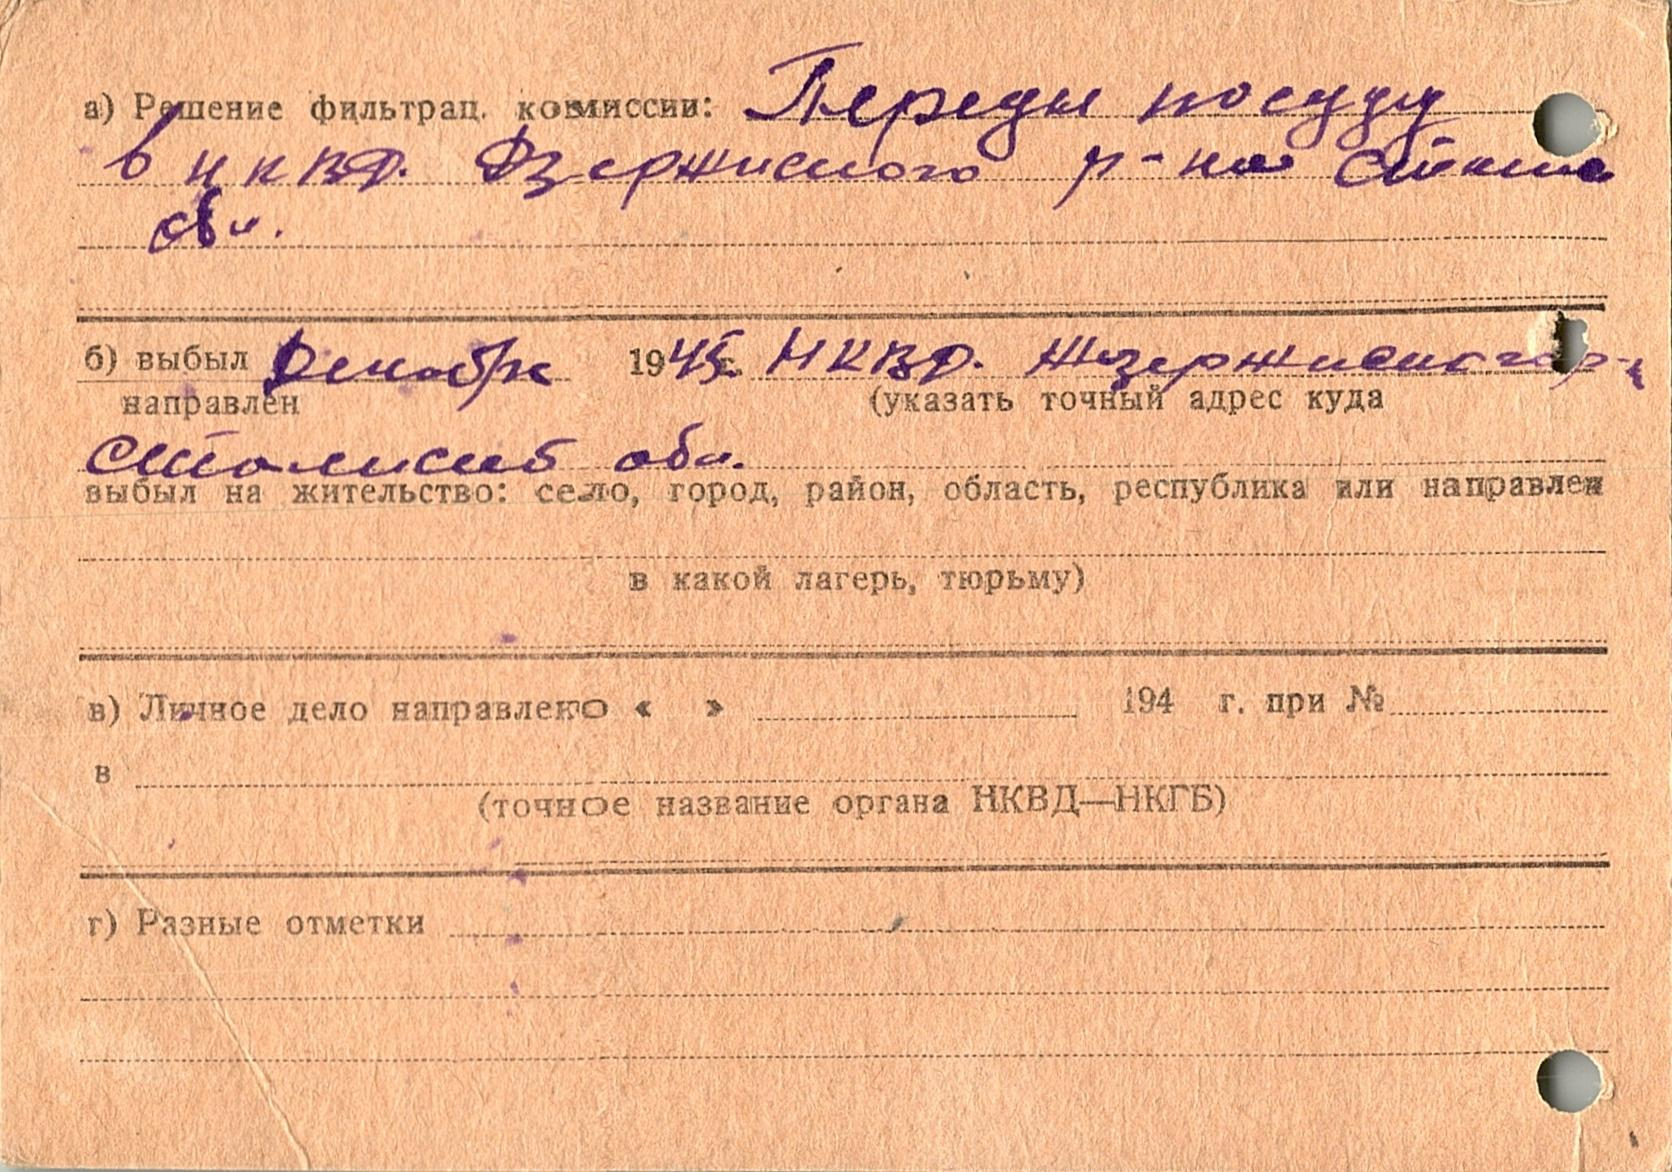 а) Решение фильтрац. комиссии: Передан
в НКВД. Дзержинского р-на
обл.
б) выбыл Декабрь 1945 г. НКВД. Дзержинского р-н
направлен (указать точный адрес куда
Сталинск обл.
выбыл на жительство: село, город, район, область, республика или направлен
в какой лагерь, тюрьму)
в) Личное дело направлено « » 194 г. при №
в
(точное название органа НКВД—НКГБ)
г) Разные отметки